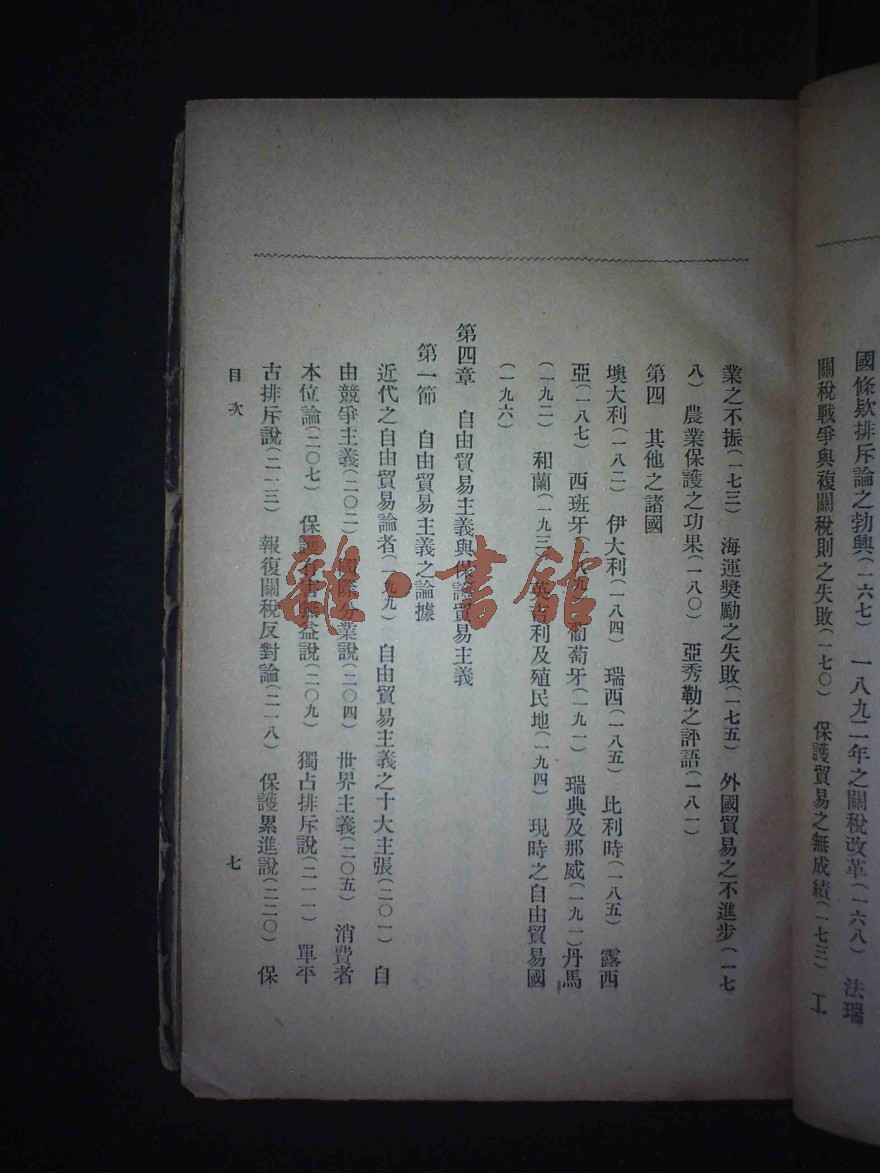 國條欵排斥論之勃興(一六七) 一八九二年之關稅改革(一六八) 法瑞
關稅戰爭與複關稅則之失敗(一七〇) 保護貿易之無成績(一七三) 工
業之不振(一七三) 海運獎勵之失敗(一七五) 外國貿易之不進步(一七
八) 農業保護之功果(一八〇) 亞秀勒之評語(一八一)
第四 其他之諸國
墺大利(一八二) 伊大利(一八四) 瑞西(一八五) 比利時(一八五) 露西
亞(一八七) 西班牙(一八九) 葡萄牙(一九一) 瑞典及那威(一九一)丹馬
(一九二) 和蘭(一九三) 英吉利及殖民地(一九四) 現時之自由貿易國
(一九六)
第四章 自由貿易主義與保護貿易主義
第一節 自由貿易主義之論據
近代之自由貿易論者(一九九) 自由貿易主義之十大主張(二〇一) 自
由競爭主義(二〇二) 國際分業說(二〇四) 世界主義(二〇五) 消費者
本位論(二〇七) 保護有害無益說(二〇九) 獨占排斥說(二一一) 單平
古排斥說(二一三) 報復關稅反對論(二一八) 保護累進說(二二〇) 保
目次
七
雜·書館